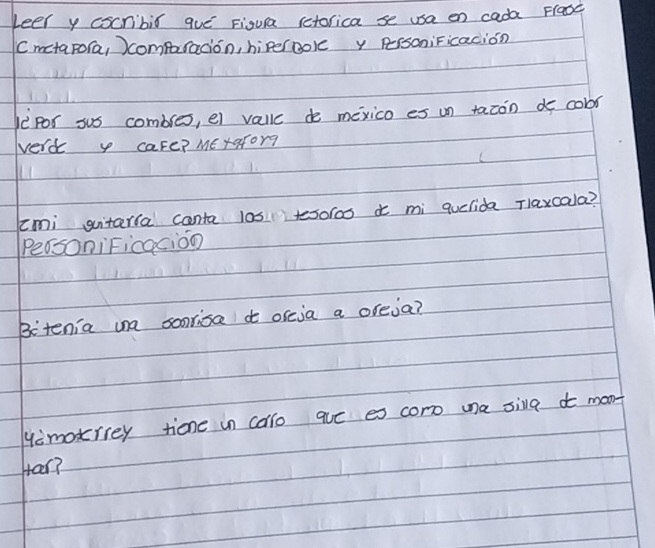 Leer y escribir qué Figura retorica se usa en cada Frase
(metaFora,)comParación, hiPerbole y PersoniFicación
1¿Por sus combres, el valle de méxico es un tazón de color
verde y caFe? Metafora
2mi guitarra canta los tesoros de mi querida Tlaxcala?
PersoniFicación
3¿tenía una sonrisa de oreja a oreja?
4¿monterrey tiene un cerro que es como una silla de mon-
tar?